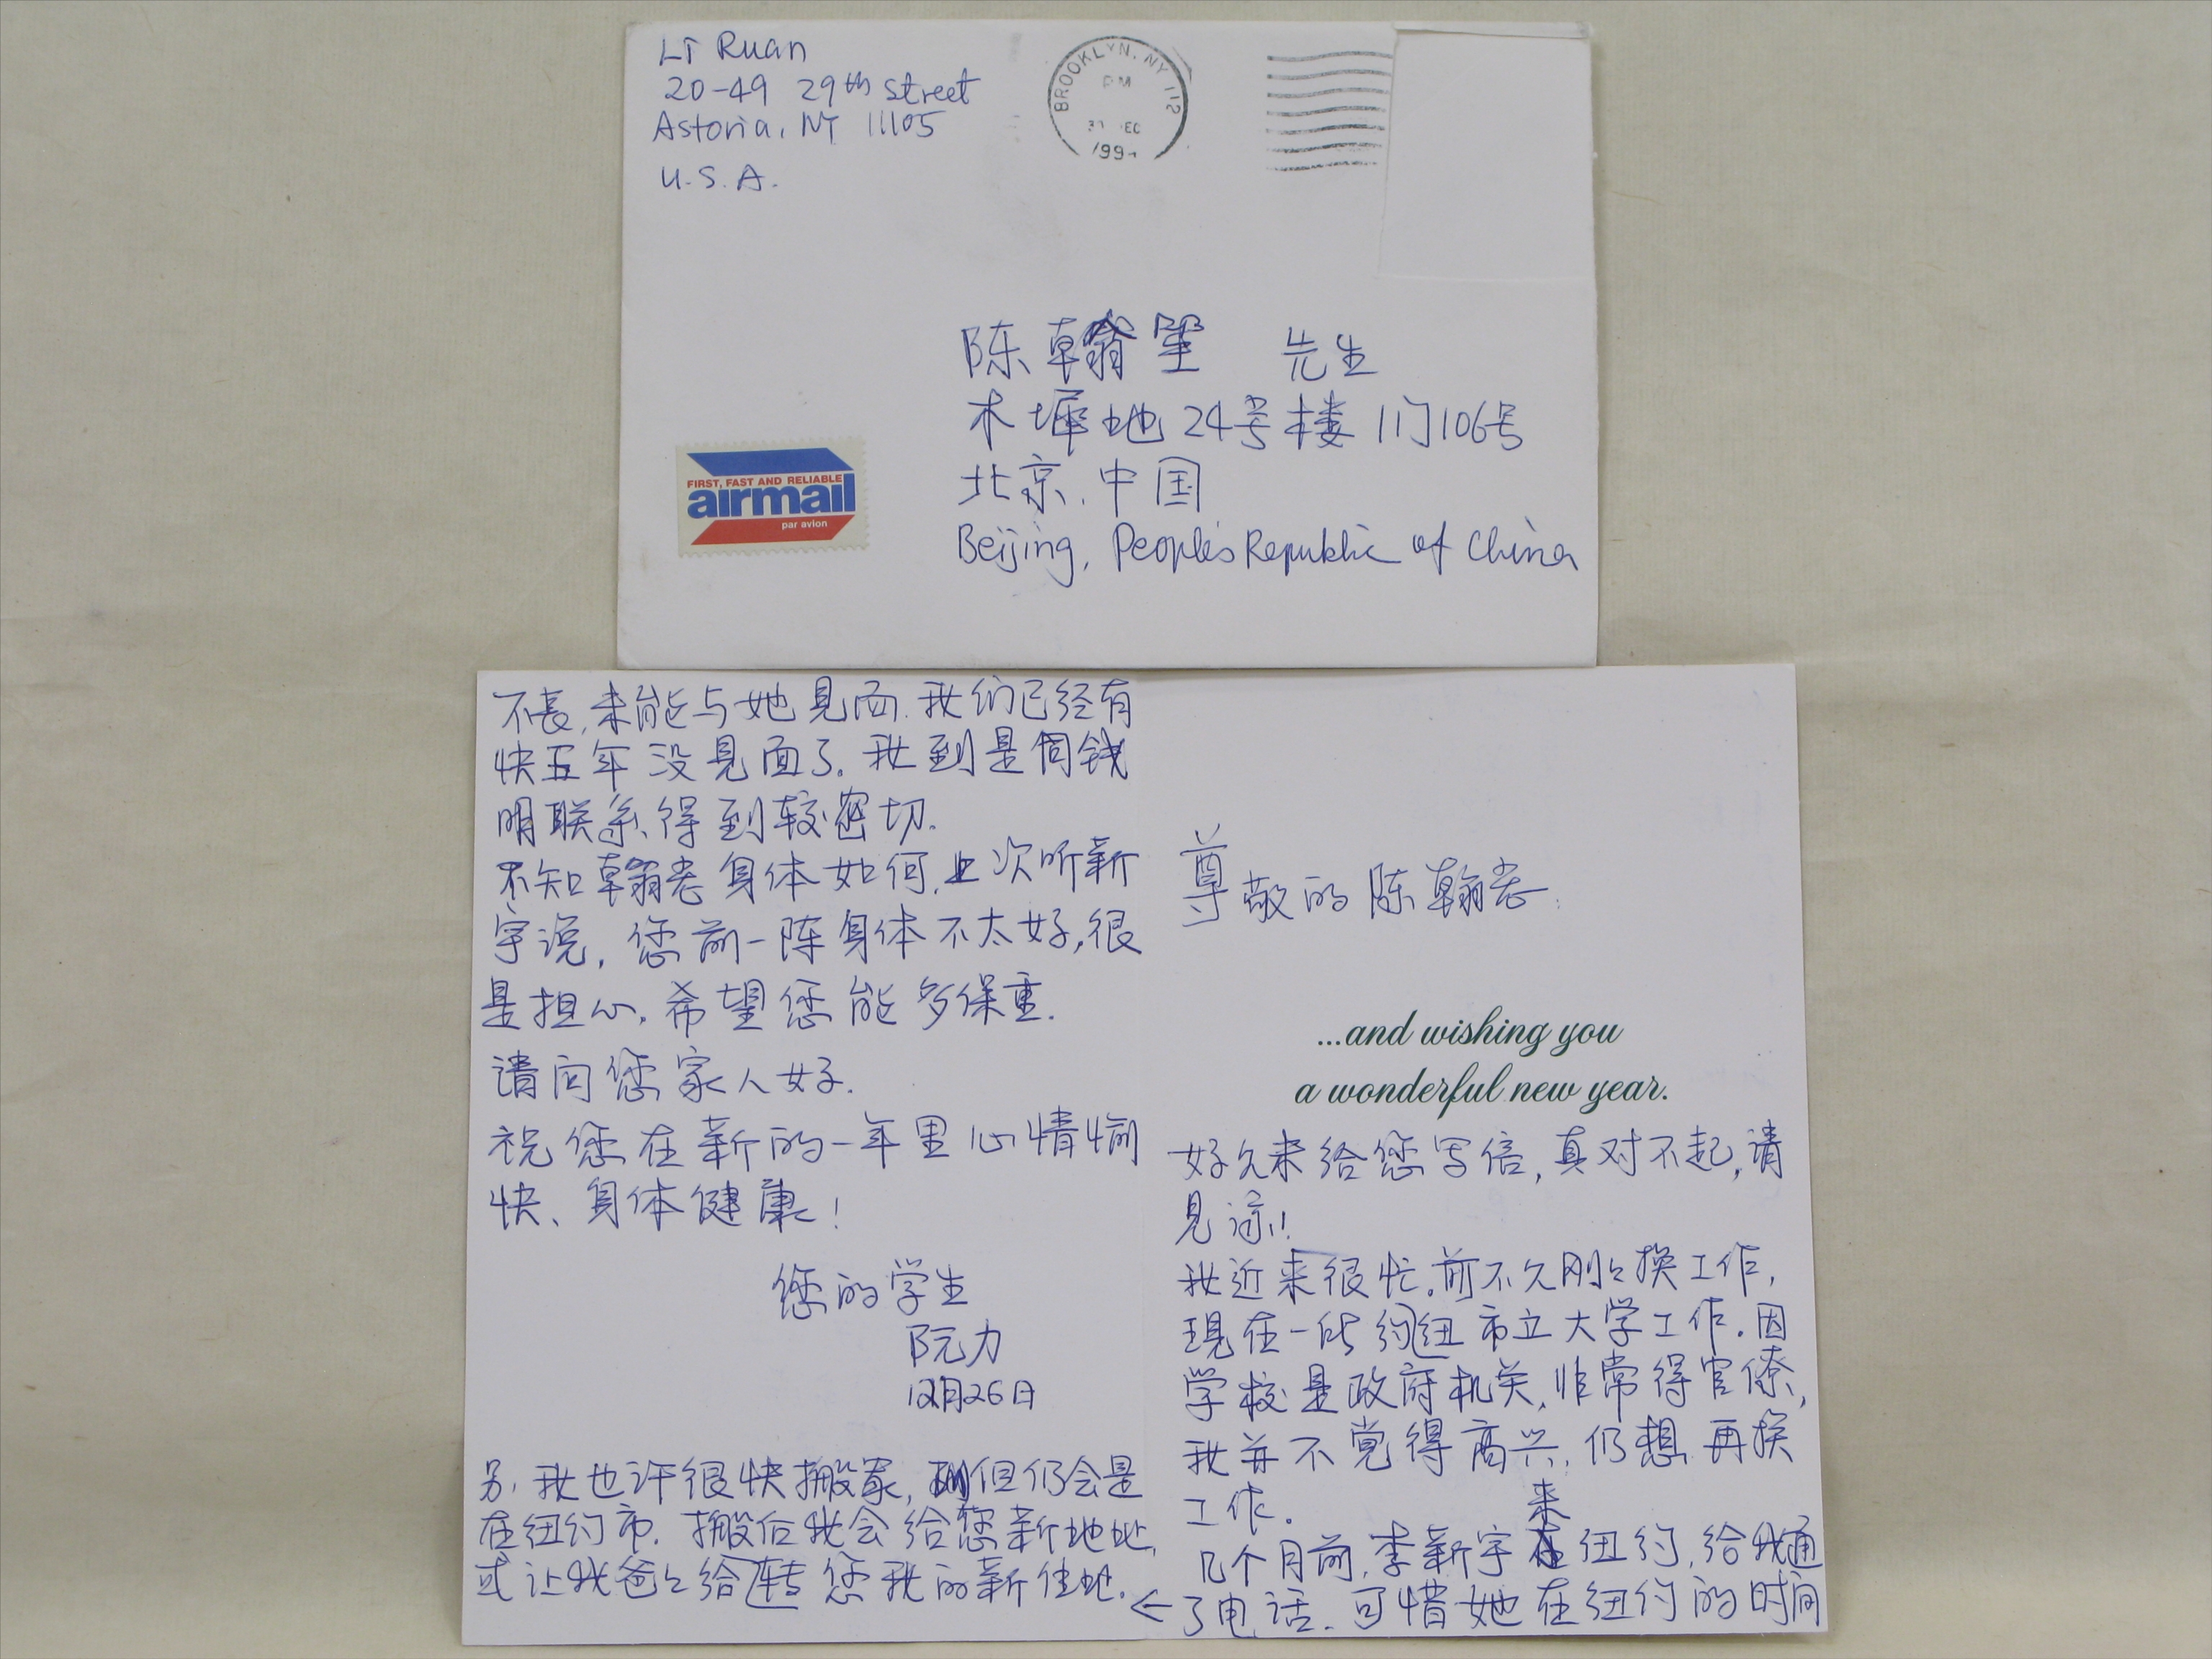 Li Ruan
20-49 29th Street
Astoria, NY 11105
U.S.A.
BROOKLYN, NY 112
PM
1994
陈翰笙 先生
木墀地24号楼1门106号
北京,中国
Beijing, People's Republic of China
FIRST, FAST AND RELIABLE
airmail
par avion
尊敬的陈翰老:
...and wishing you
a wonderful new year.
好久未给您写信,真对不起,请
见谅!!
我近来很忙。前不久刚刚换工作,
现在一所纽约市立大学工作.因
学校是政府机关,非常得官僚,
我并不觉得高兴,仍想再换
工作.
几个月前,李新宇来纽约,给我通
了电话.可惜她在纽约的时间
不长,未能与她见面.我们已经有
快五年没见面了.我到是同钱
明联系得到较密切.
不知翰老身体如何,上次听新
宇说,您前一阵身体不太好,很
是担心.希望您能多保重.
请问您家人好.
祝您在新的一年里心情愉
快、身体健康!
您的学生
阮力
12月26日
另,我也许很快搬家,但仍会是
在纽约市.搬后我会给您新地址,
或让我爸爸转给您我的新住址.